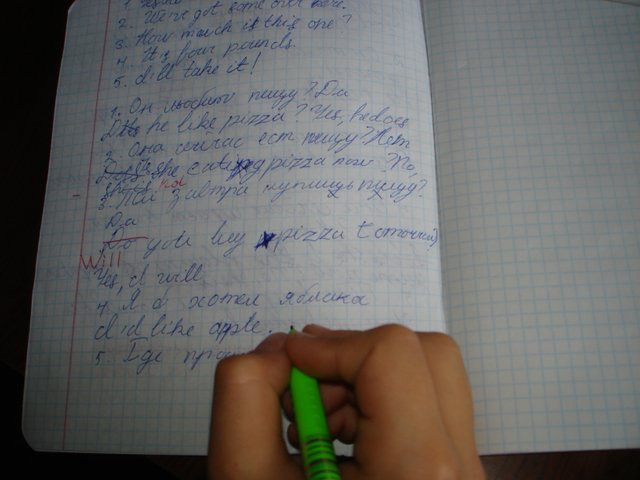 2. We've got some over here.
3. How much is this one?
4. It's four pounds.
5. I'll take it!
1. Он любит пиццу? Да
Does he like pizza? Yes, he does
2. Она сейчас ест пиццу? Нет
Is she eating pizza now? No,
she is not
3. Ты завтра купишь пиццу?
Да
Do you buy pizza tomorrow
Will
Yes, I will
4. Я б хотел яблока
I'd like apple.
5. Где